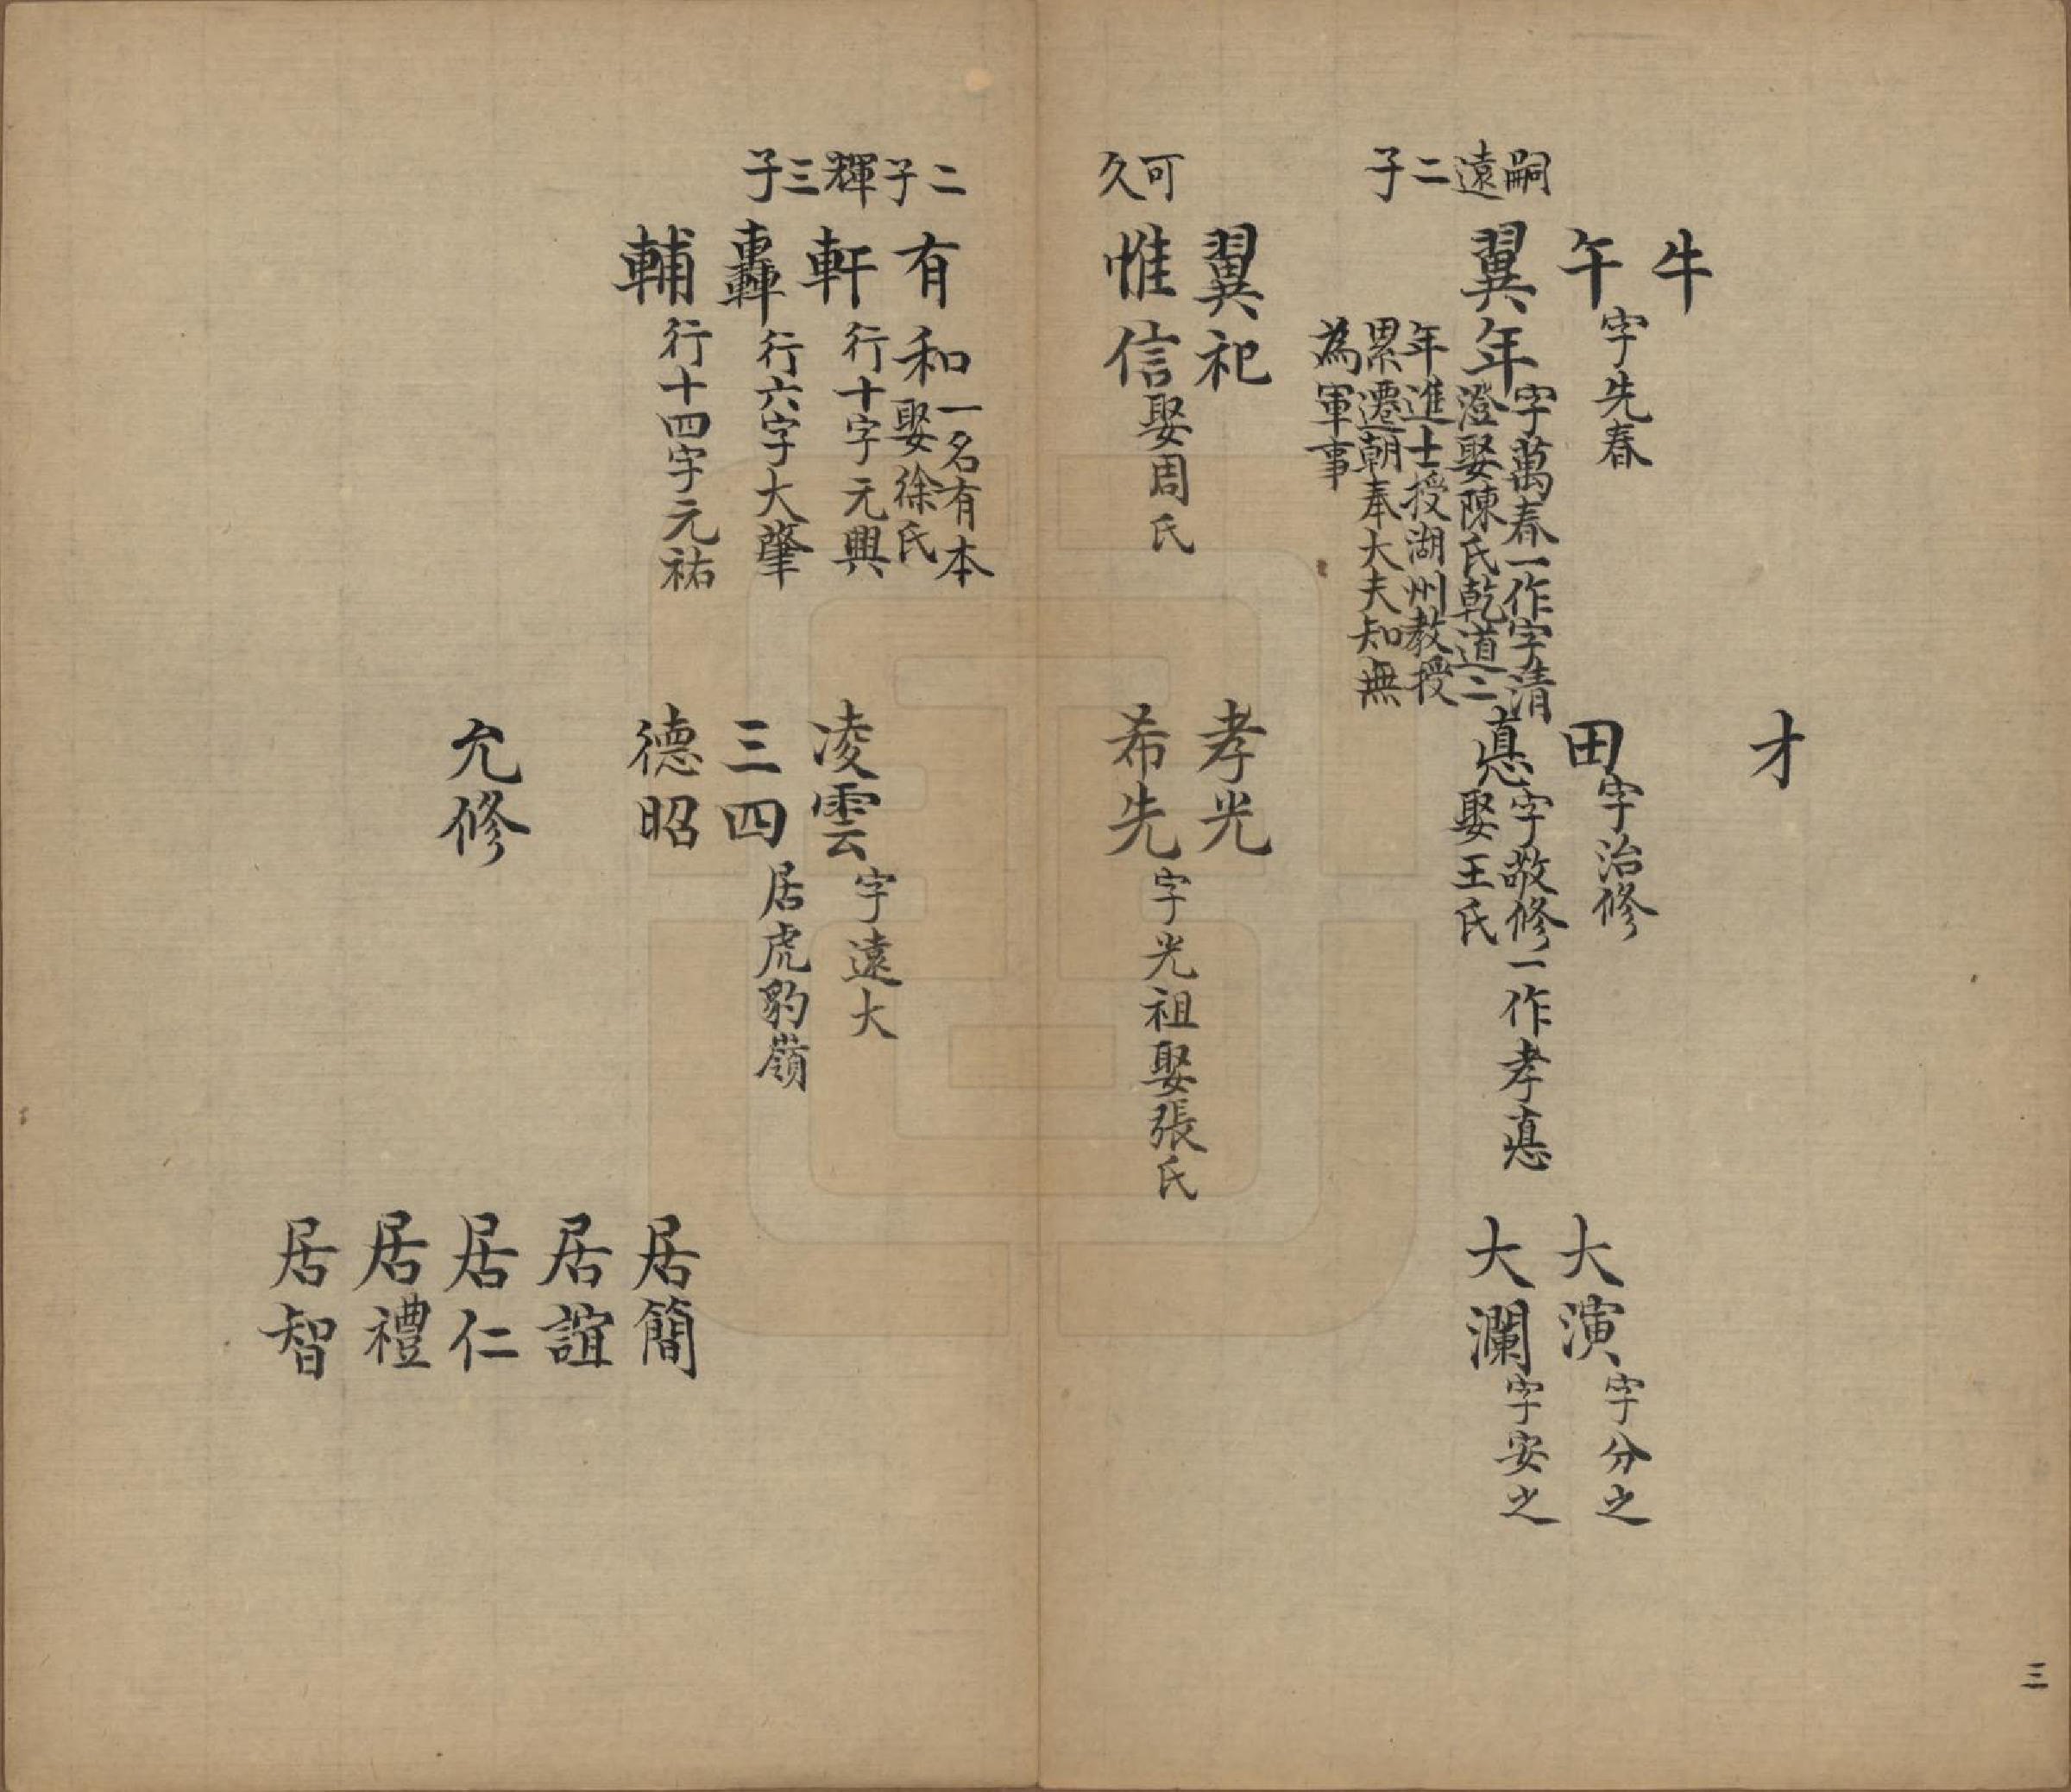 才
牛
午 字先春
田 字治修
大演 字分之
嗣遠二子
翼年 字萬春一作字清
澄娶陳氏乾道二
年進士授湖州教授
累遷朝奉大夫知無
為軍事
悳 字敬修一作孝悳
娶王氏
大瀾 字安之
翼祀
孝光
可久
惟信 娶周氏
希先 字光祖娶張氏
二子
有和 一名有本
娶徐氏
輝三子
軒 行十字元興
凌雲 字遠大
轟 行六字大肇
三四 居虎豹嶺
輔 行十四字元祐
德昭
居簡
居誼
允修
居仁
居禮
居智
三